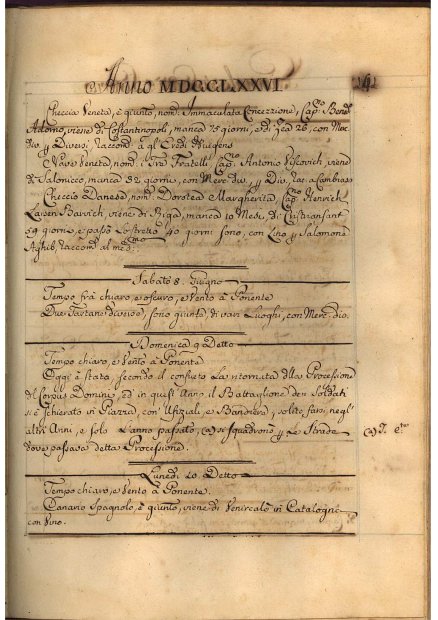 Anno MDCCLXXVI.
Checcia Veneta, è giunto, nom: Immaculata Concezzione, Cap:no Bend:
viene di Costantinopoli, manca 75 giorni, e di 26, con Merc:
div: y Diversi, Raccom: a gl' Eredi
Nave Veneta, nom: i Tre Fratelli, Cap:no Antonio viene
di Salonicco, manca 32 giorni, con Merc: div: y Div: Rac: a Cambiaso
Checcio Danese, nom: Dorotea Margherita, Cap:no Henrich
Larsen viene di Riga, manca 10 Mesi, di Cristiansant
59 giorni, e passò lo stretto 40 giorni sono, con Lino y Salomone
Aghib, Raccom: al med:mo
Sabato 8. Giugno
Tempo frà chiaro, e oscuro, e Vento à Ponente
Due Tartane diverse, sono giunte, di vari Luoghi, con Merc: div:
Domenica 9 Detto
Tempo chiaro, e Vento à Ponente
Oggi è stata, secondo il consueto La ritornata della Processione
del Corpus Domini, ed in quest' Anno il Battaglione de' Soldati
si è schierato in Piazza, con Ufiziali, e Bandiera, solito farsi negl'
altri Anni, e solo L'anno passato, (a) si squadronò y Le Strade
dove passava detta Processione.
(a) T. e:to
Lunedì 10 Detto
Tempo chiaro, e Vento à Ponente.
Canario Spagnolo, è giunto, viene di Venicalò in Catalogna
con Vino.